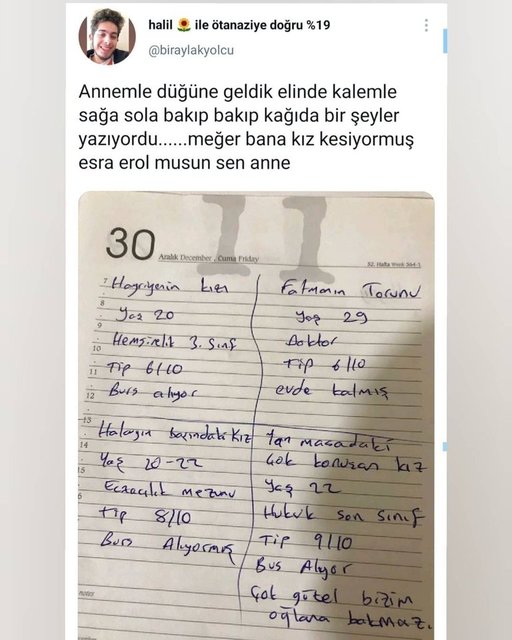 halil 🌻 ile ötanaziye doğru %19
@biraylakyolcu
Annemle düğüne geldik elinde kalemle
sağa sola bakıp bakıp kağıda bir şeyler
yazıyordu......meğer bana kız kesiyormuş
esra erol musun sen anne
11
30 Aralık December, Cuma Friday
52. Hafta Week 364-1
Hayriyenin kızı
Yaş 20
Hemşirelik 3. Sınıf
Tip 6/10
Burs alıyor
Fatmanın Torunu
Yaş 29
Doktor
Tip 6/10
evde kalmış
Halayın başındaki Kız
Yaş 20-22
Eczacılık mezunu
tip 8/10
Burs Alıyormuş
tan masadaki
çok konuşan kız
Yaş 22
Hukuk son sınıf
Tip 9/10
Bus Alıyor
Çok güzel bizim
oğlana bakmaz.
7
8
9
10
11
12
13
14
15
notes